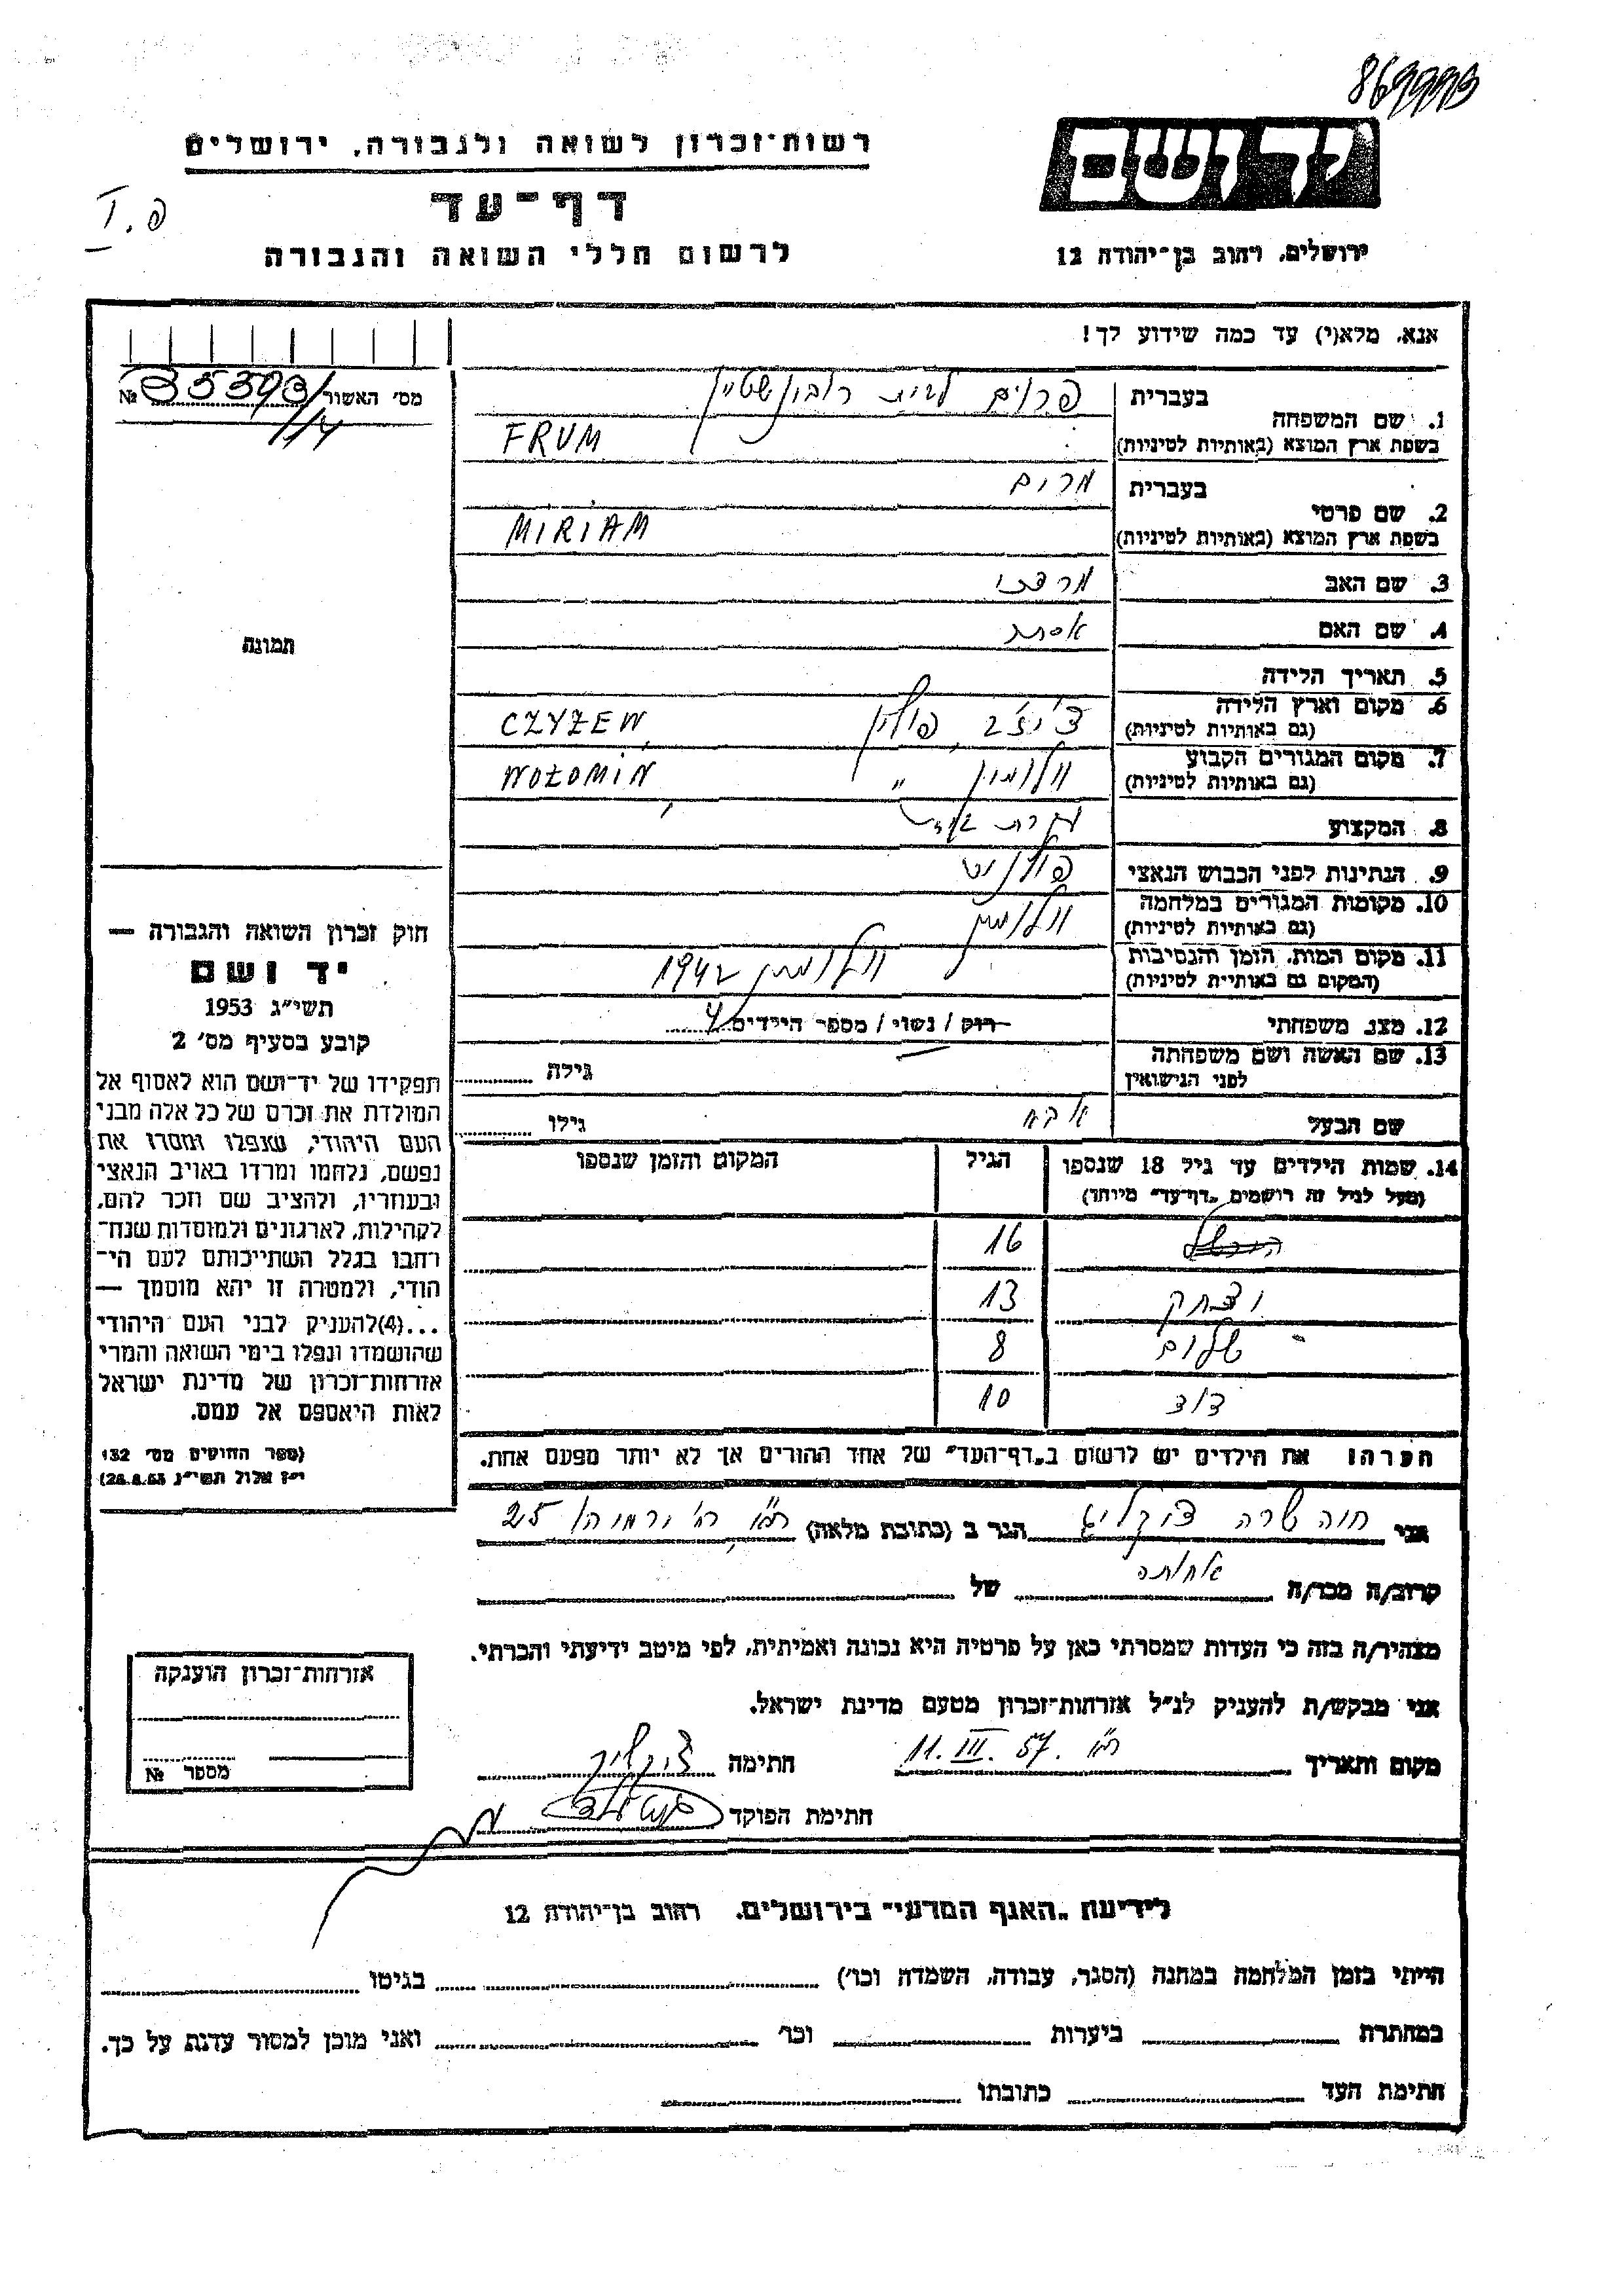 רשות-זכרון לשואה ולגבורה, ירושלים
יד ושם
דף-עד
I. פ
לרשום חללי השואה והגבורה
ירושלים, רחוב בן-יהודה 12
אנא, מלא(י) עד כמה שידוע לך!
מס׳ האשור № 35593/114
תמונה
1. שם המשפחה
בעברית פרום לבית רובינשטיין
בשפת ארץ המוצא (באותיות לטיניות) FRUM
2. שם פרטי
בעברית מרים
בשפת ארץ המוצא (באותיות לטיניות) MIRIAM
3. שם האב מרדכי
4. שם האם אסתר
5. תאריך הלידה
6. מקום וארץ הלידה צ׳יז׳ב, פולין CZYŻEW,
(גם באותיות לטיניות)
7. מקום המגורים הקבוע וולומין " WOŁOMIN,
(גם באותיות לטיניות)
8. המקצוע עקרת בית
9. הנתינות לפני הכבוש הנאצי פולנית
10. מקומות המגורים במלחמה וולומין
(גם באותיות לטיניות)
11. מקום המות, הזמן והנסיבות וולומין 1942
(המקום גם באותיות לטיניות)
12. מצב משפחתי רוק / נשוי / מספר הילדים 4
13. שם האשה ושם משפחתה
לפני הנישואין גילה
שם הבעל אבא גילו
14. שמות הילדים עד גיל 18 שנספו הגיל המקום והזמן שנספו
(מעל לגיל זה רושמים "דף-עד" מיוחד)
16
יצחק 13
שלום 8
דוד 10
הערה: את הילדים יש לרשום ב"דף-העד" של אחד ההורים אך לא יותר מפעם אחת.
חוק זכרון השואה והגבורה —
יד ושם
תשי״ג 1953
קובע בסעיף מס׳ 2
תפקידו של יד-ושם הוא לאסוף אל
המולדת את זכרם של כל אלה מבני
העם היהודי, שנפלו ומסרו את
נפשם, נלחמו ומרדו באויב הנאצי
ובעוזריו, ולהציב שם וזכר להם,
לקהילות, לארגונים ולמוסדות שנח-
רבו בגלל השתייכותם לעם הי-
הודי, ולמטרה זו יהא מוסמך —
...(4)להעניק לבני העם היהודי
שהושמדו ונפלו בימי השואה והמרי
אזרחות-זכרון של מדינת ישראל
לאות היאספם אל עמם.
(ספר החוקים מס׳ 132
י״ז אלול תשי״ג 28.8.53)
אני חוה שרה הגר ב (כתובת מלאה) ת״א, רח׳ ירמיהו 25
קרוב/ה מכר/ה אחותה של
מצהיר/ה בזה כי העדות שמסרתי כאן על פרטיה היא נכונה ואמיתית, לפי מיטב ידיעתי והכרתי.
אני מבקש/ת להעניק לנ״ל אזרחות-זכרון מטעם מדינת ישראל.
מקום ותאריך ת״א. 11. III. 57 חתימה
חתימת הפוקד
אזרחות-זכרון הוענקה
מספר №
לידיעת "האגף המדעי" בירושלים, רחוב בן-יהודה 12
הייתי בזמן המלחמה במחנה (הסגר, עבודה, השמדה וכו׳) בגיטו
במחתרת ביערות וכו׳ ואני מוכן למסור עדות על כך.
חתימת העד כתובתו